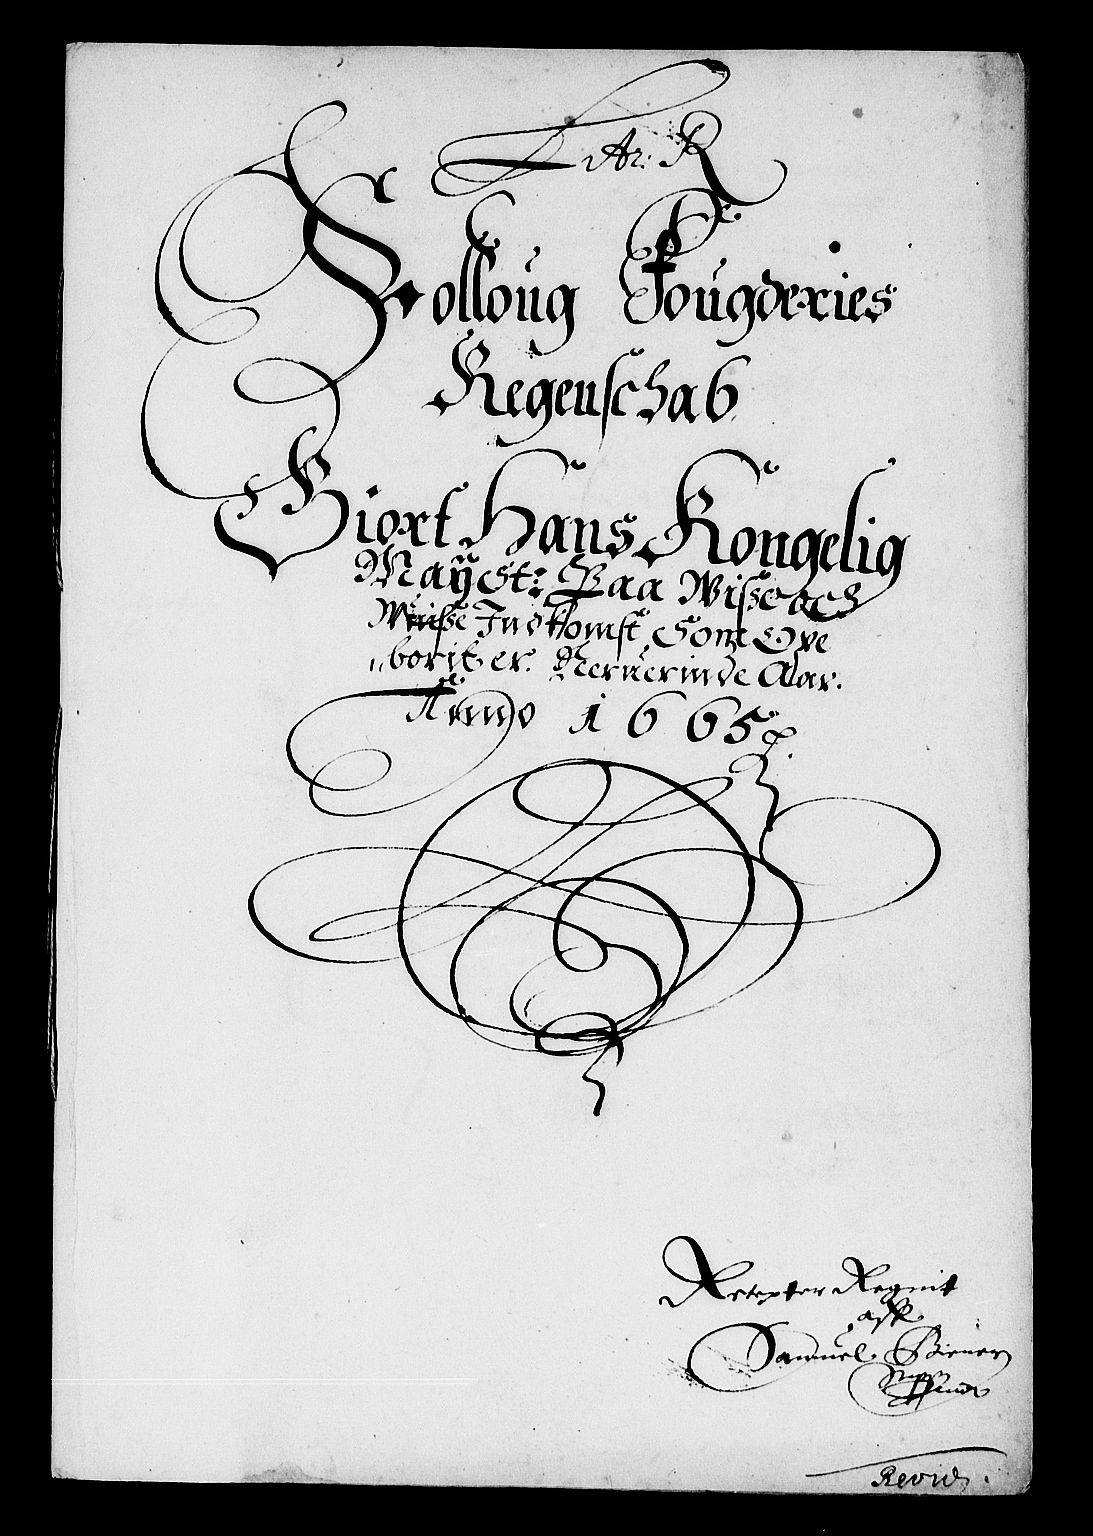 Ar: R
Folloug Fougderies
Regenschab
Giort Hans Kongelig
Mayst: Paa Wisse och
Wuisse Indkomst Som Ove
"borit er. Nerverinde Aar.
Anno 1665
Regnit
aff
Samuel
Revid.